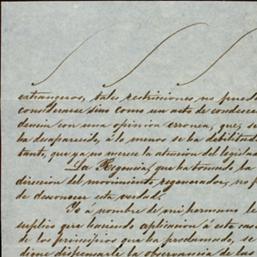 estrangeros, tales restricciones no puede
considerarse sino como un acto de condesce
dencia con una opinion erronea, que, s
ha desaparecido, á lo menos se ha debilitad
tanto, que ya no merece la atencion del legisla
La Regencia, que ha tomado la
direccion del movimiento regenerador, no p
de desconocer esta verdad.
Yo a nombre de mi hermano le
suplico que haciendo aplicacion á este cas
de los principios que ha proclamado, se
digne dispensarle la observancia de las